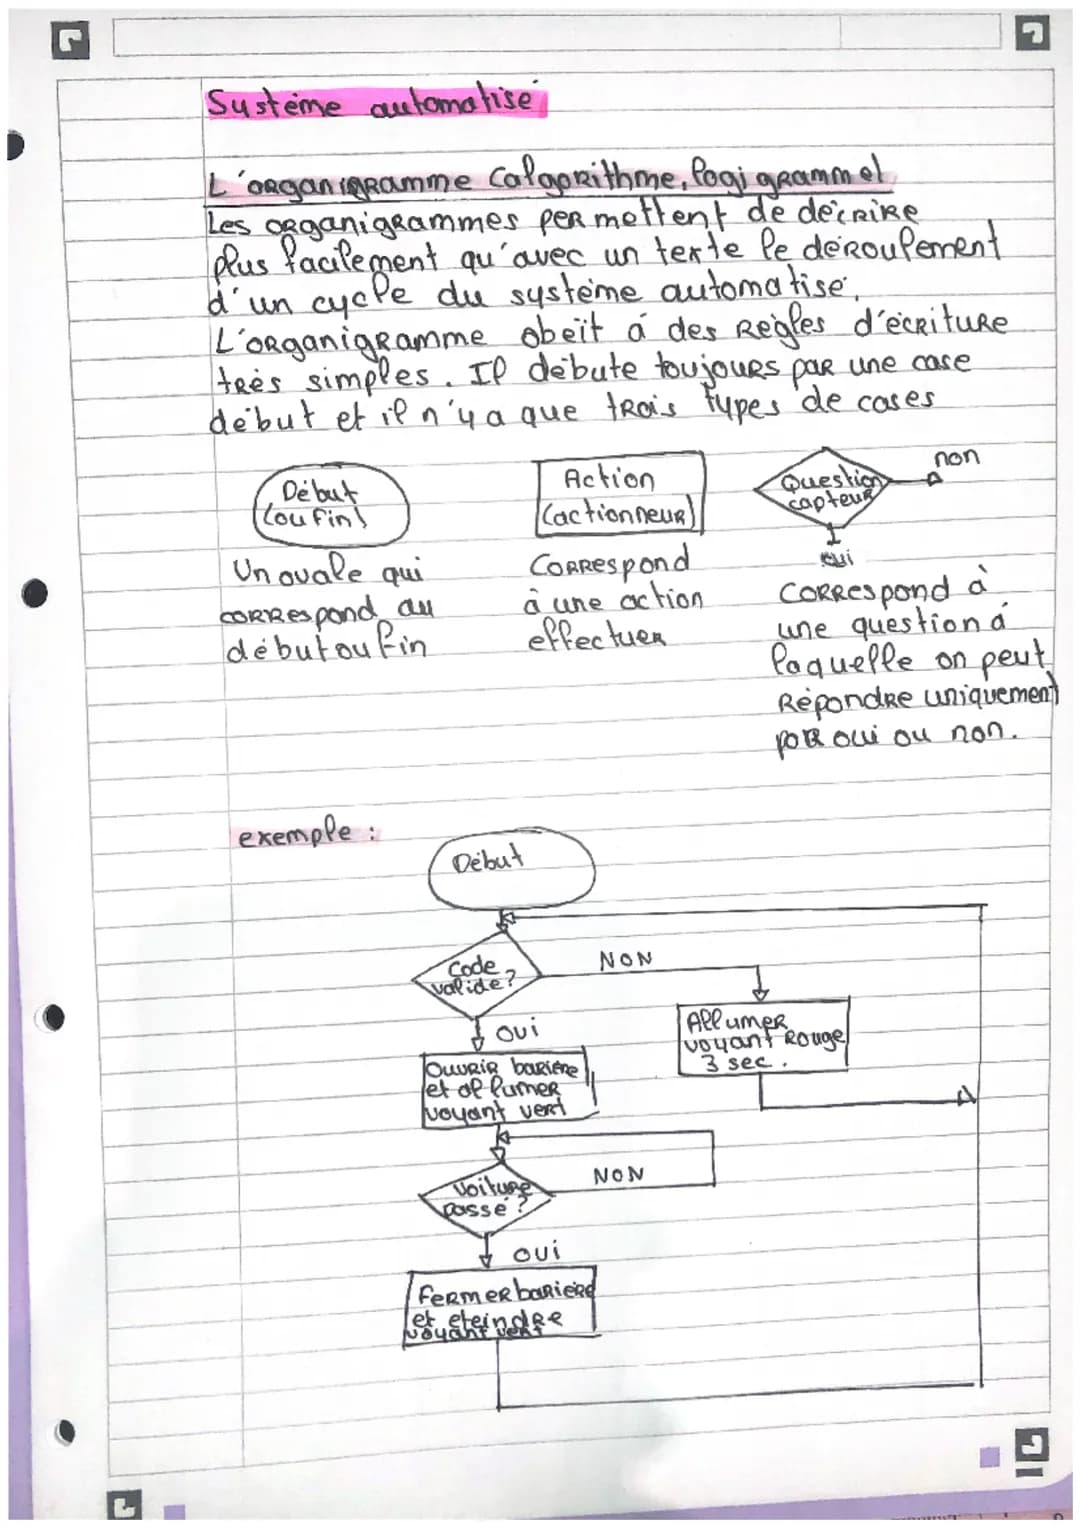 Système automatisé
L'organigramme (algorithme, logigramme)
Les organigrammes permettent de décrire
plus facilement qu'avec un texte le déroulement
d'un cycle du système automatisé.
L'organigramme obeït à des règles d'écriture
très simples. Il débute toujours par une case
début et il n'y a que trois types de cases
Début
(ou fin)
Un ovale qui
correspond au
début ou fin
Action
(actionneur)
Correspond
à une action
effectuer
Question
capteur
non
oui
Correspond à
une question à
laquelle on peut
répondre uniquement
par oui ou non.
exemple :
Début
Code
valide ?
NON
oui
Allumer
voyant Rouge
3 sec.
Ouvrir barière
et allumer
voyant vert
Voiture
passé ?
NON
oui
Fermer barière
et eteindre
voyant vert